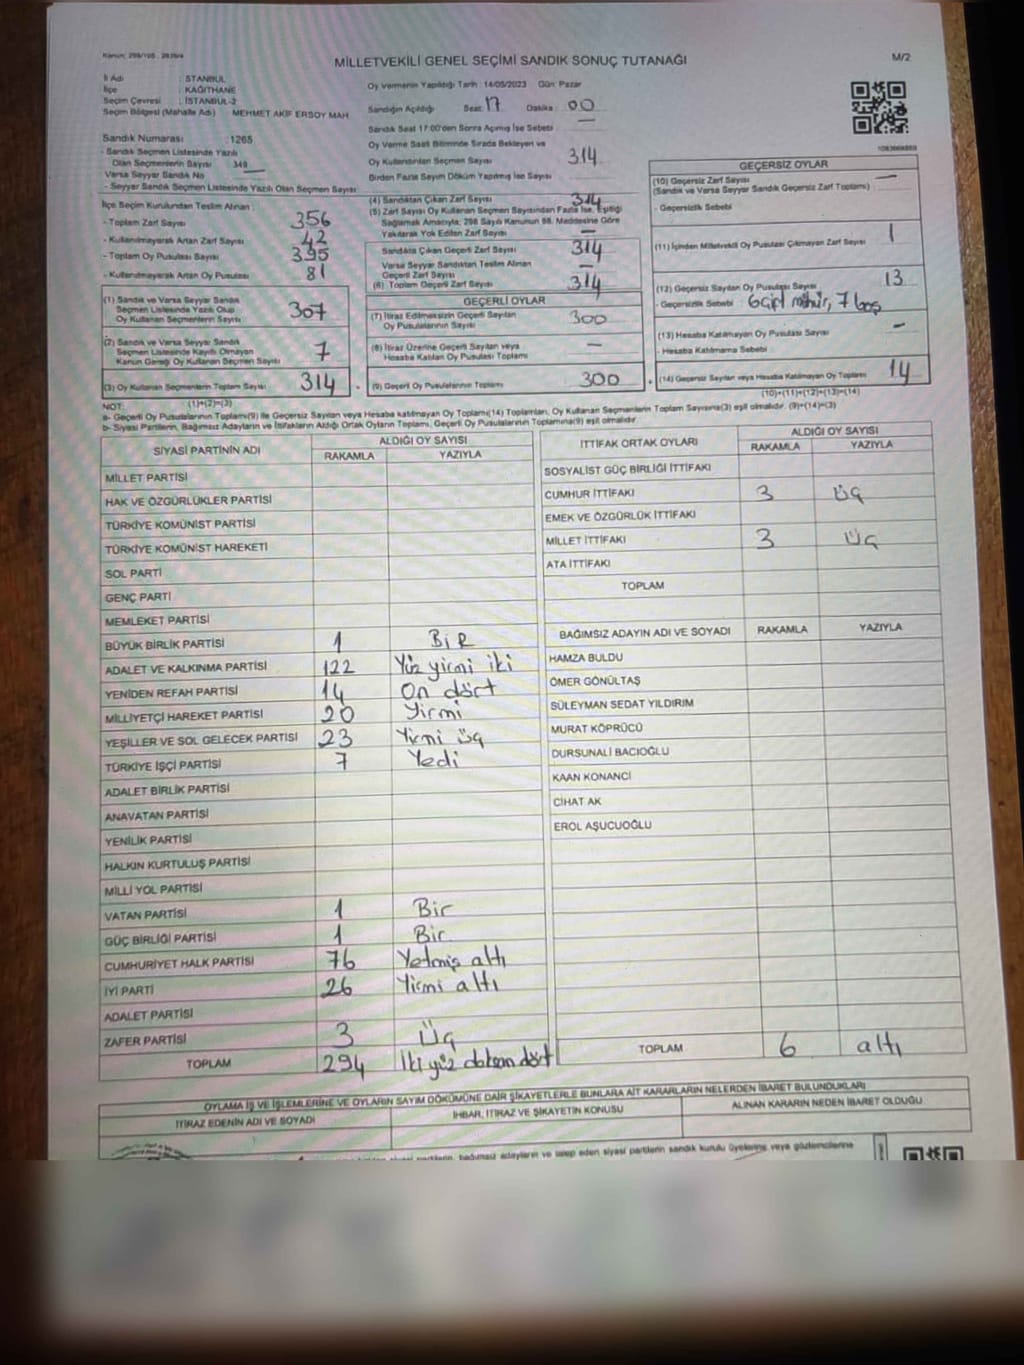 MİLLETVEKİLİ GENEL SEÇİMİ SANDIK SONUÇ TUTANAĞI
M/2
İl Adı : STANBUL
İlçe : KAĞITHANE
Seçim Çevresi : İSTANBUL-2
Seçim Bölgesi (Mahalle Adı) MEHMET AKİF ERSOY MAH
Sandık Numarası : 1265
- Sandık Seçmen Listesinde Yazılı
Olan Seçmenlerin Sayısı 349
Varsa Seyyar Sandık No —
- Seyyar Sandık Seçmen Listesinde Yazılı Olan Seçmen Sayısı
Oy Vermenin Yapıldığı Tarih : 14/05/2023 Gün: Pazar
Sandığın Açıldığı Saat: 17 Dakika : 00
Sandık Saat 17:00'den Sonra Açılmış İse Sebebi —
Oy Verme Saati Bitiminde Sırada Bekleyen ve
Oy Kullandırılan Seçmen Sayısı 314
Birden Fazla Sayım Döküm Yapılmış İse Sayısı
İlçe Seçim Kurulundan Teslim Alınan :
- Toplam Zarf Sayısı 356
- Kullanılmayarak Artan Zarf Sayısı 42
- Toplam Oy Pusulası Sayısı 395
- Kullanılmayarak Artan Oy Pusulası 81
(1) Sandık ve Varsa Seyyar Sandık
Seçmen Listesinde Yazılı Olup
Oy Kullanan Seçmenlerin Sayısı 307
(2) Sandık ve Varsa Seyyar Sandık
Seçmen Listesinde Kayıtlı Olmayan
Kanun Gereği Oy Kullanan Seçmen Sayısı 7
(3) Oy Kullanan Seçmenlerin Toplam Sayısı 314
(1)+(2)=(3)
(4) Sandıktan Çıkan Zarf Sayısı 314
(5) Zarf Sayısı Oy Kullanan Seçmen Sayısından Fazla İse, Eşitliği
Sağlamak Amacıyla, 298 Sayılı Kanunun 98. Maddesine Göre
Yakılarak Yok Edilen Zarf Sayısı —
Sandıkta Çıkan Geçerli Zarf Sayısı 314
Varsa Seyyar Sandıktan Teslim Alınan
Geçerli Zarf Sayısı —
(6) Toplam Geçerli Zarf Sayısı 314
GEÇERLİ OYLAR
(7) İtiraz Edilmeksizin Geçerli Sayılan
Oy Pusulalarının Sayısı 300
(8) İtiraz Üzerine Geçerli Sayılan veya
Hesaba Katılan Oy Pusulası Toplamı —
(9) Geçerli Oy Pusulalarının Toplamı 300
GEÇERSİZ OYLAR
(10) Geçersiz Zarf Sayısı —
(Sandık ve Varsa Seyyar Sandık Geçersiz Zarf Toplamı)
- Geçersizlik Sebebi
(11) İçinden Milletvekili Oy Pusulası Çıkmayan Zarf Sayısı 1
(12) Geçersiz Sayılan Oy Pusulası Sayısı 13
- Geçersizlik Sebebi 6 çift mühür, 7 boş
(13) Hesaba Katılmayan Oy Pusulası Sayısı —
- Hesaba Katılmama Sebebi
(14) Geçersiz Sayılan veya Hesaba Katılmayan Oy Toplamı 14
(10)+(11)+(12)+(13)=(14)
NOT:
a- Geçerli Oy Pusulalarının Toplamı(9) ile Geçersiz Sayılan veya Hesaba katılmayan Oy Toplamı(14) Toplamları, Oy Kullanan Seçmenlerin Toplam Sayısına(3) eşit olmalıdır. (9)+(14)=(3)
b- Siyasi Partilerin, Bağımsız Adayların ve İttifakların Aldığı Ortak Oyların Toplamı, Geçerli Oy Pusulalarının Toplamına(9) eşit olmalıdır
SİYASİ PARTİNİN ADI ALDIĞI OY SAYISI
RAKAMLA YAZIYLA
MİLLET PARTİSİ
HAK VE ÖZGÜRLÜKLER PARTİSİ
TÜRKİYE KOMÜNİST PARTİSİ
TÜRKİYE KOMÜNİST HAREKETİ
SOL PARTİ
GENÇ PARTİ
MEMLEKET PARTİSİ
BÜYÜK BİRLİK PARTİSİ 1 BİR
ADALET VE KALKINMA PARTİSİ 122 Yüz yirmi iki
YENİDEN REFAH PARTİSİ 14 On dört
MİLLİYETÇİ HAREKET PARTİSİ 20 Yirmi
YEŞİLLER VE SOL GELECEK PARTİSİ 23 Yirmi üç
TÜRKİYE İŞÇİ PARTİSİ 7 Yedi
ADALET BİRLİK PARTİSİ
ANAVATAN PARTİSİ
YENİLİK PARTİSİ
HALKIN KURTULUŞ PARTİSİ
MİLLİ YOL PARTİSİ
VATAN PARTİSİ 1 Bir
GÜÇ BİRLİĞİ PARTİSİ 1 Bir
CUMHURİYET HALK PARTİSİ 76 Yetmiş altı
İYİ PARTİ 26 Yirmi altı
ADALET PARTİSİ
ZAFER PARTİSİ 3 Üç
TOPLAM 294 İki yüz doksan dört
İTTİFAK ORTAK OYLARI ALDIĞI OY SAYISI
RAKAMLA YAZIYLA
SOSYALİST GÜÇ BİRLİĞİ İTTİFAKI
CUMHUR İTTİFAKI 3 üç
EMEK VE ÖZGÜRLÜK İTTİFAKI
MİLLET İTTİFAKI 3 Üç
ATA İTTİFAKI
TOPLAM
BAĞIMSIZ ADAYIN ADI VE SOYADI RAKAMLA YAZIYLA
HAMZA BULDU
ÖMER GÖNÜLTAŞ
SÜLEYMAN SEDAT YILDIRIM
MURAT KÖPRÜCÜ
DURSUNALİ BACIOĞLU
KAAN KONANCİ
CİHAT AK
EROL AŞUCUOĞLU
TOPLAM 6 altı
OYLAMA İŞ VE İŞLEMLERİNE VE OYLARIN SAYIM DÖKÜMÜNE DAİR ŞİKAYETLERLE BUNLARA AİT KARARLARIN NELERDEN İBARET BULUNDUKLARI
İTİRAZ EDENİN ADI VE SOYADI İHBAR, İTİRAZ VE ŞİKAYETİN KONUSU ALINAN KARARIN NEDEN İBARET OLDUĞU
siyasi partilerin, bağımsız adayların ve talep eden siyasi partilerin sandık kurulu üyelerine veya gözlemcilerine